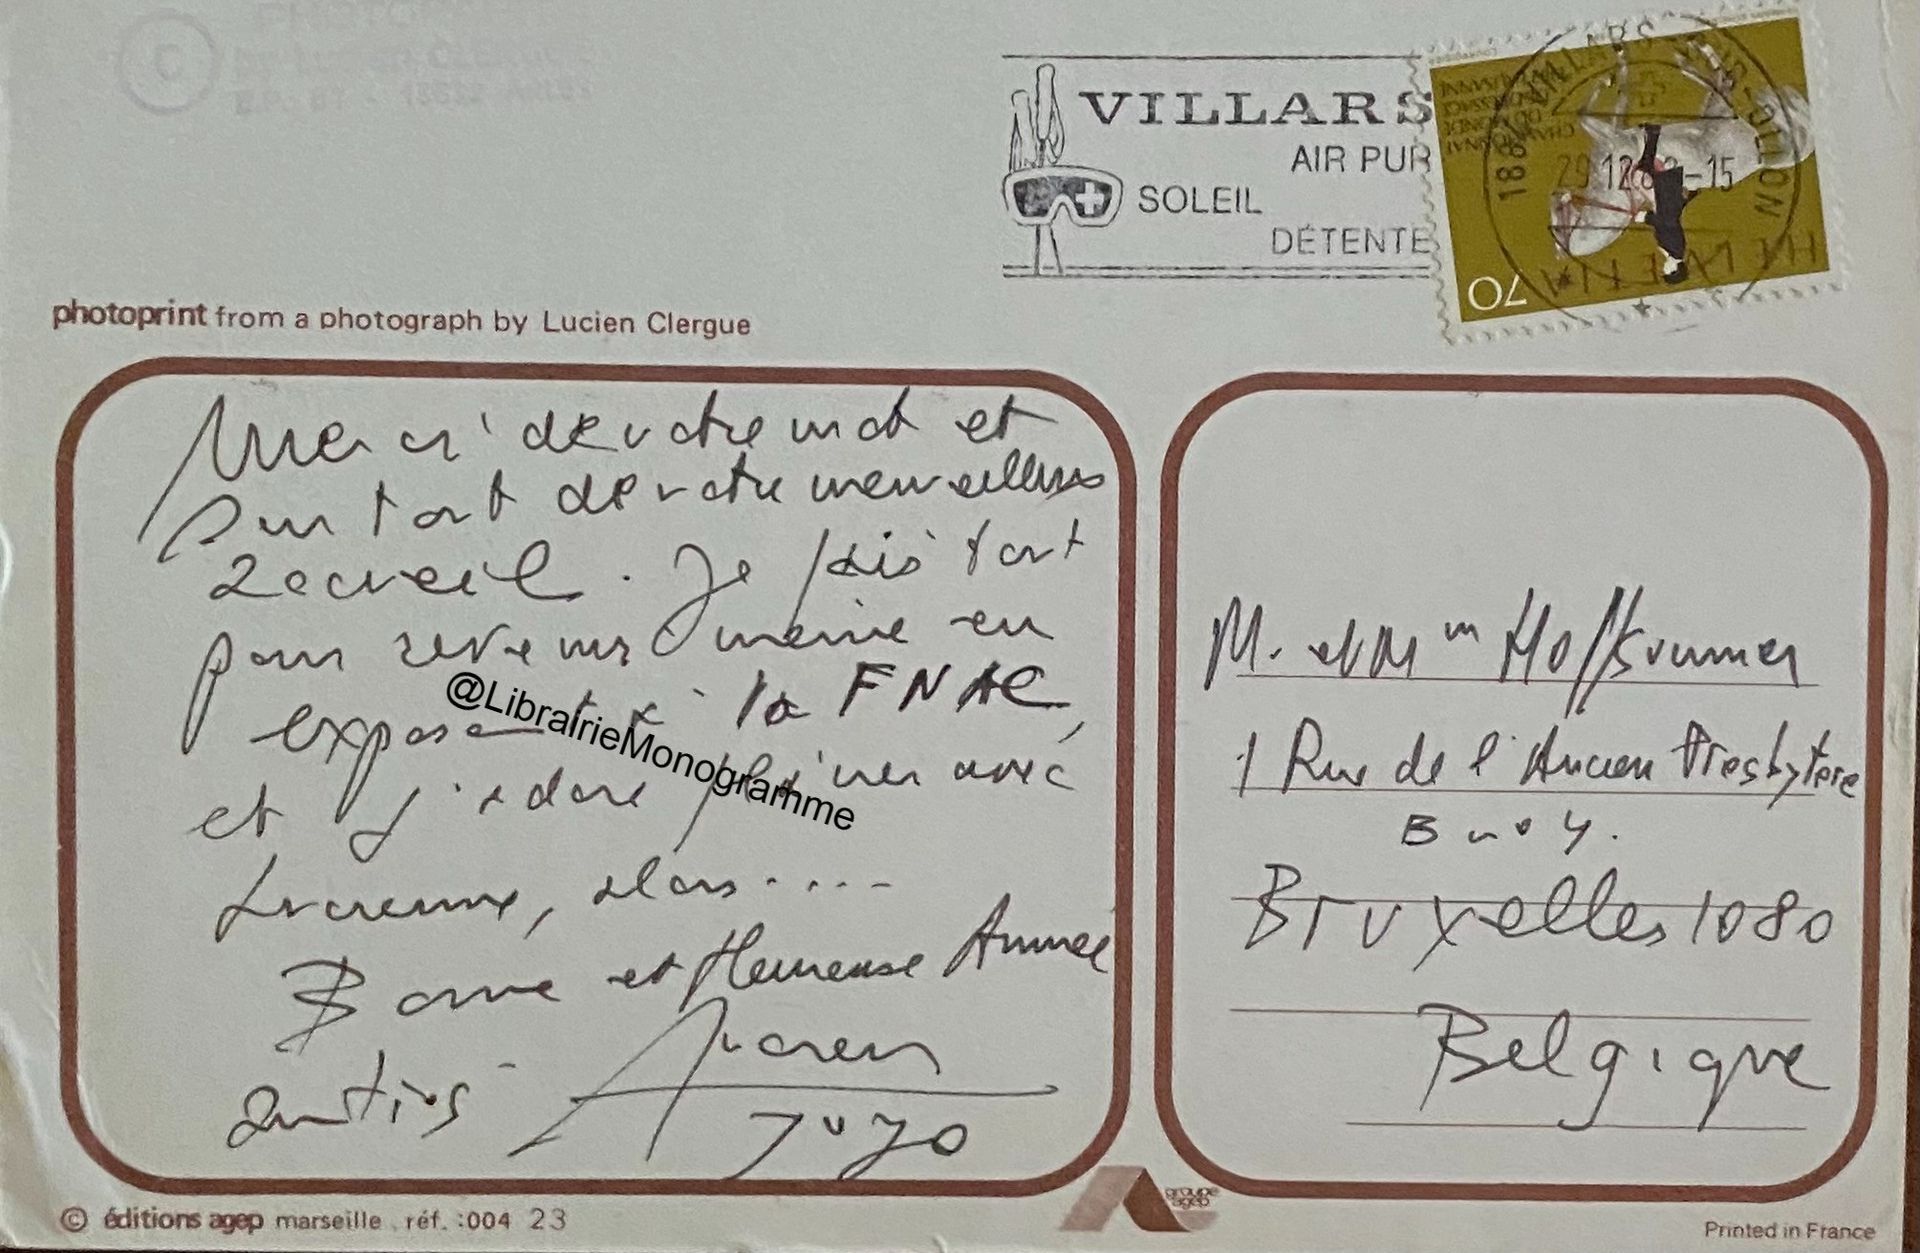 VILLARS
AIR PUR
SOLEIL
DÉTENTE
1884 VILLARS-SUR-OLLON
29.12. -15
HELVETIA
70
photoprint from a photograph by Lucien Clergue
Merci de votre mot et
surtout de votre merveilleux
recueil. Je suis tout
pour revenir même en
exposant à la FNAC,
et j'adore avec
Lucienne, alors....
Bonne et Heureuse Année
amitiés Lucien
YuYo
@LibrairieMonogramme
M. et Mm
1 Rue de l'Ancien Presbytere
Bruxelles 1080
Belgique
groupe
agep
© éditions agep marseille . réf. :004 23
Printed in France